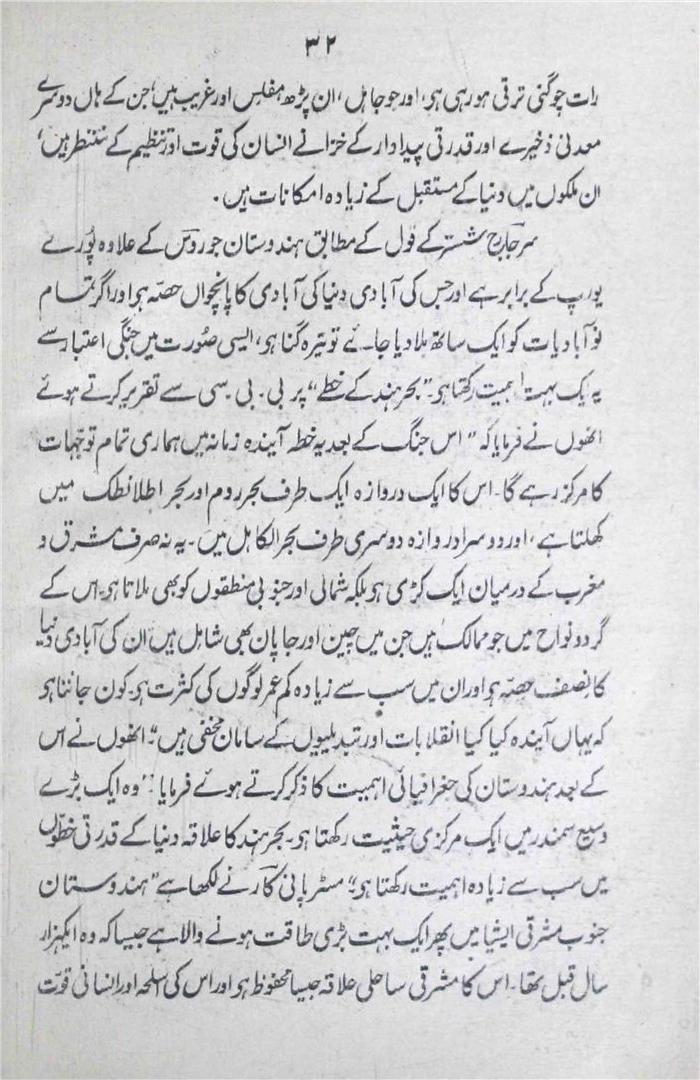 ۳۲
رات چوگنی ترقی ہو رہی ہو، اور جو جاہل، ان پڑھ مفلس اور غریب ہیں؛ جن کے ہاں دوسرے
معدنی ذخیرے اور قدرتی پیداوار کے خزانے انسان کی قوت اور تنظیم کے منتظر ہیں،
ان ملکوں میں دنیا کے مستقبل کے زیادہ امکانات ہیں۔
سر جارج شسٹر کے قول کے مطابق ہندوستان جو روس کے علاوہ پُورے
یورپ کے برابر ہے اور جس کی آبادی دنیا کی آبادی کا پانچواں حصّہ ہو اور اگر تمام
نوآبادیات کو ایک ساتھ ملا دیا جائے تو تیرہ گنا ہو، ایسی صُورت میں جنگی اعتبار سے
یہ یک بہت اہمیت رکھتا ہو۔ "بحر ہند کے خطے،" پر بی۔بی۔سی سے تقریر کرتے ہوئے
انھوں نے فرمایا کہ "اس جنگ کے بعد یہ خطہ آیندہ زمانہ میں ہماری تمام توجّہات
کا مرکز رہے گا۔ اس کا ایک دروازہ ایک طرف بحر روم اور بحر اطلانطک میں
کھلتا ہے، اور دوسرا دروازہ دوسری طرف بحر الکاہل میں۔ یہ نہ صرف مشرق و
مغرب کے درمیان ایک کڑی ہو بلکہ شمالی اور جنوبی منطقوں کو بھی ملاتا ہو۔ اس کے
گرد و نواح میں جو ممالک ہیں جن میں چین اور جاپان بھی شامل ہیں ان کی آبادی دنیا
کا نصف حصّہ ہو اور ان میں سب سے زیادہ کم عمر لوگوں کی کثرت ہو۔ کون جانتا ہو
کہ یہاں آیندہ کیا کیا انقلابات اور تبدیلیوں کے سامان مخفی ہیں"۔ انھوں نے اس
کے بعد ہندوستان کی جغرافیائی اہمیت کا ذکر کرتے ہوئے فرمایا: "وہ ایک بڑے
وسیع سمندر میں ایک مرکزی حیثیت رکھتا ہو۔ بحر ہند کا علاقہ دنیا کے قدرتی خطّوں
میں سب سے زیادہ اہمیت رکھتا ہو"۔ مسٹر پانی کار نے لکھا ہے "ہندوستان
جنوب مشرقی ایشیا میں پھر ایک بہت بڑی طاقت ہونے والا ہے جیسا کہ وہ ایکہزار
سال قبل تھا۔ اس کا مشرقی ساحلی علاقہ جیسا محفوظ ہو اور اس کی اسلحہ اور انسانی قوت